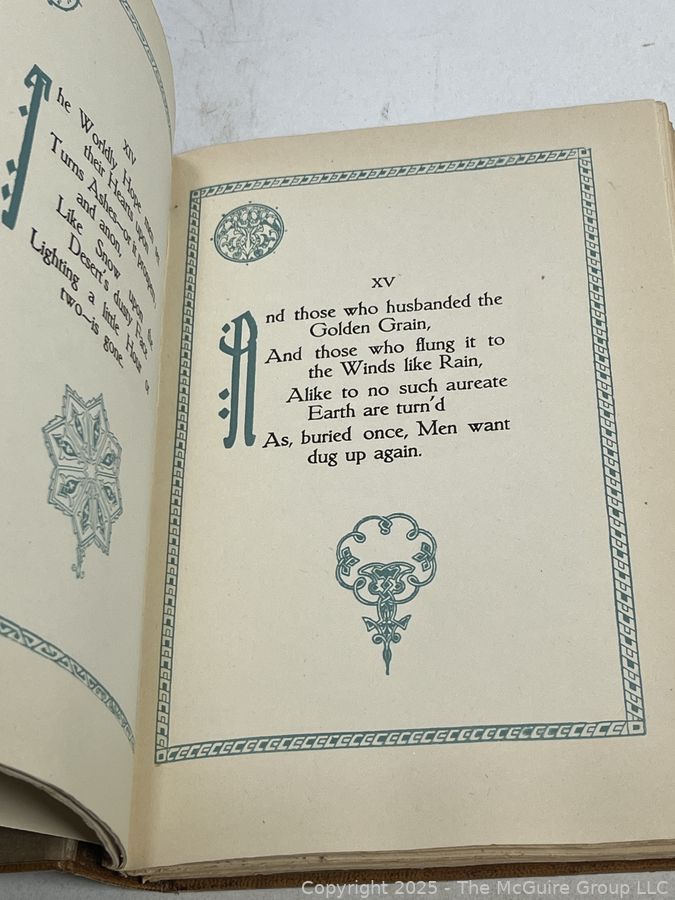 XIV
The Worldly Hope men
their Hearts upon
Turns Ashes—or it prospers;
and anon,
Like Snow upon the
Desert's dusty Face
Lighting a little Hour or
two—is gone.
XV
And those who husbanded the
Golden Grain,
And those who flung it to
the Winds like Rain,
Alike to no such aureate
Earth are turn'd
As, buried once, Men want
dug up again.
Copyright 2025 - The McGuire Group LLC